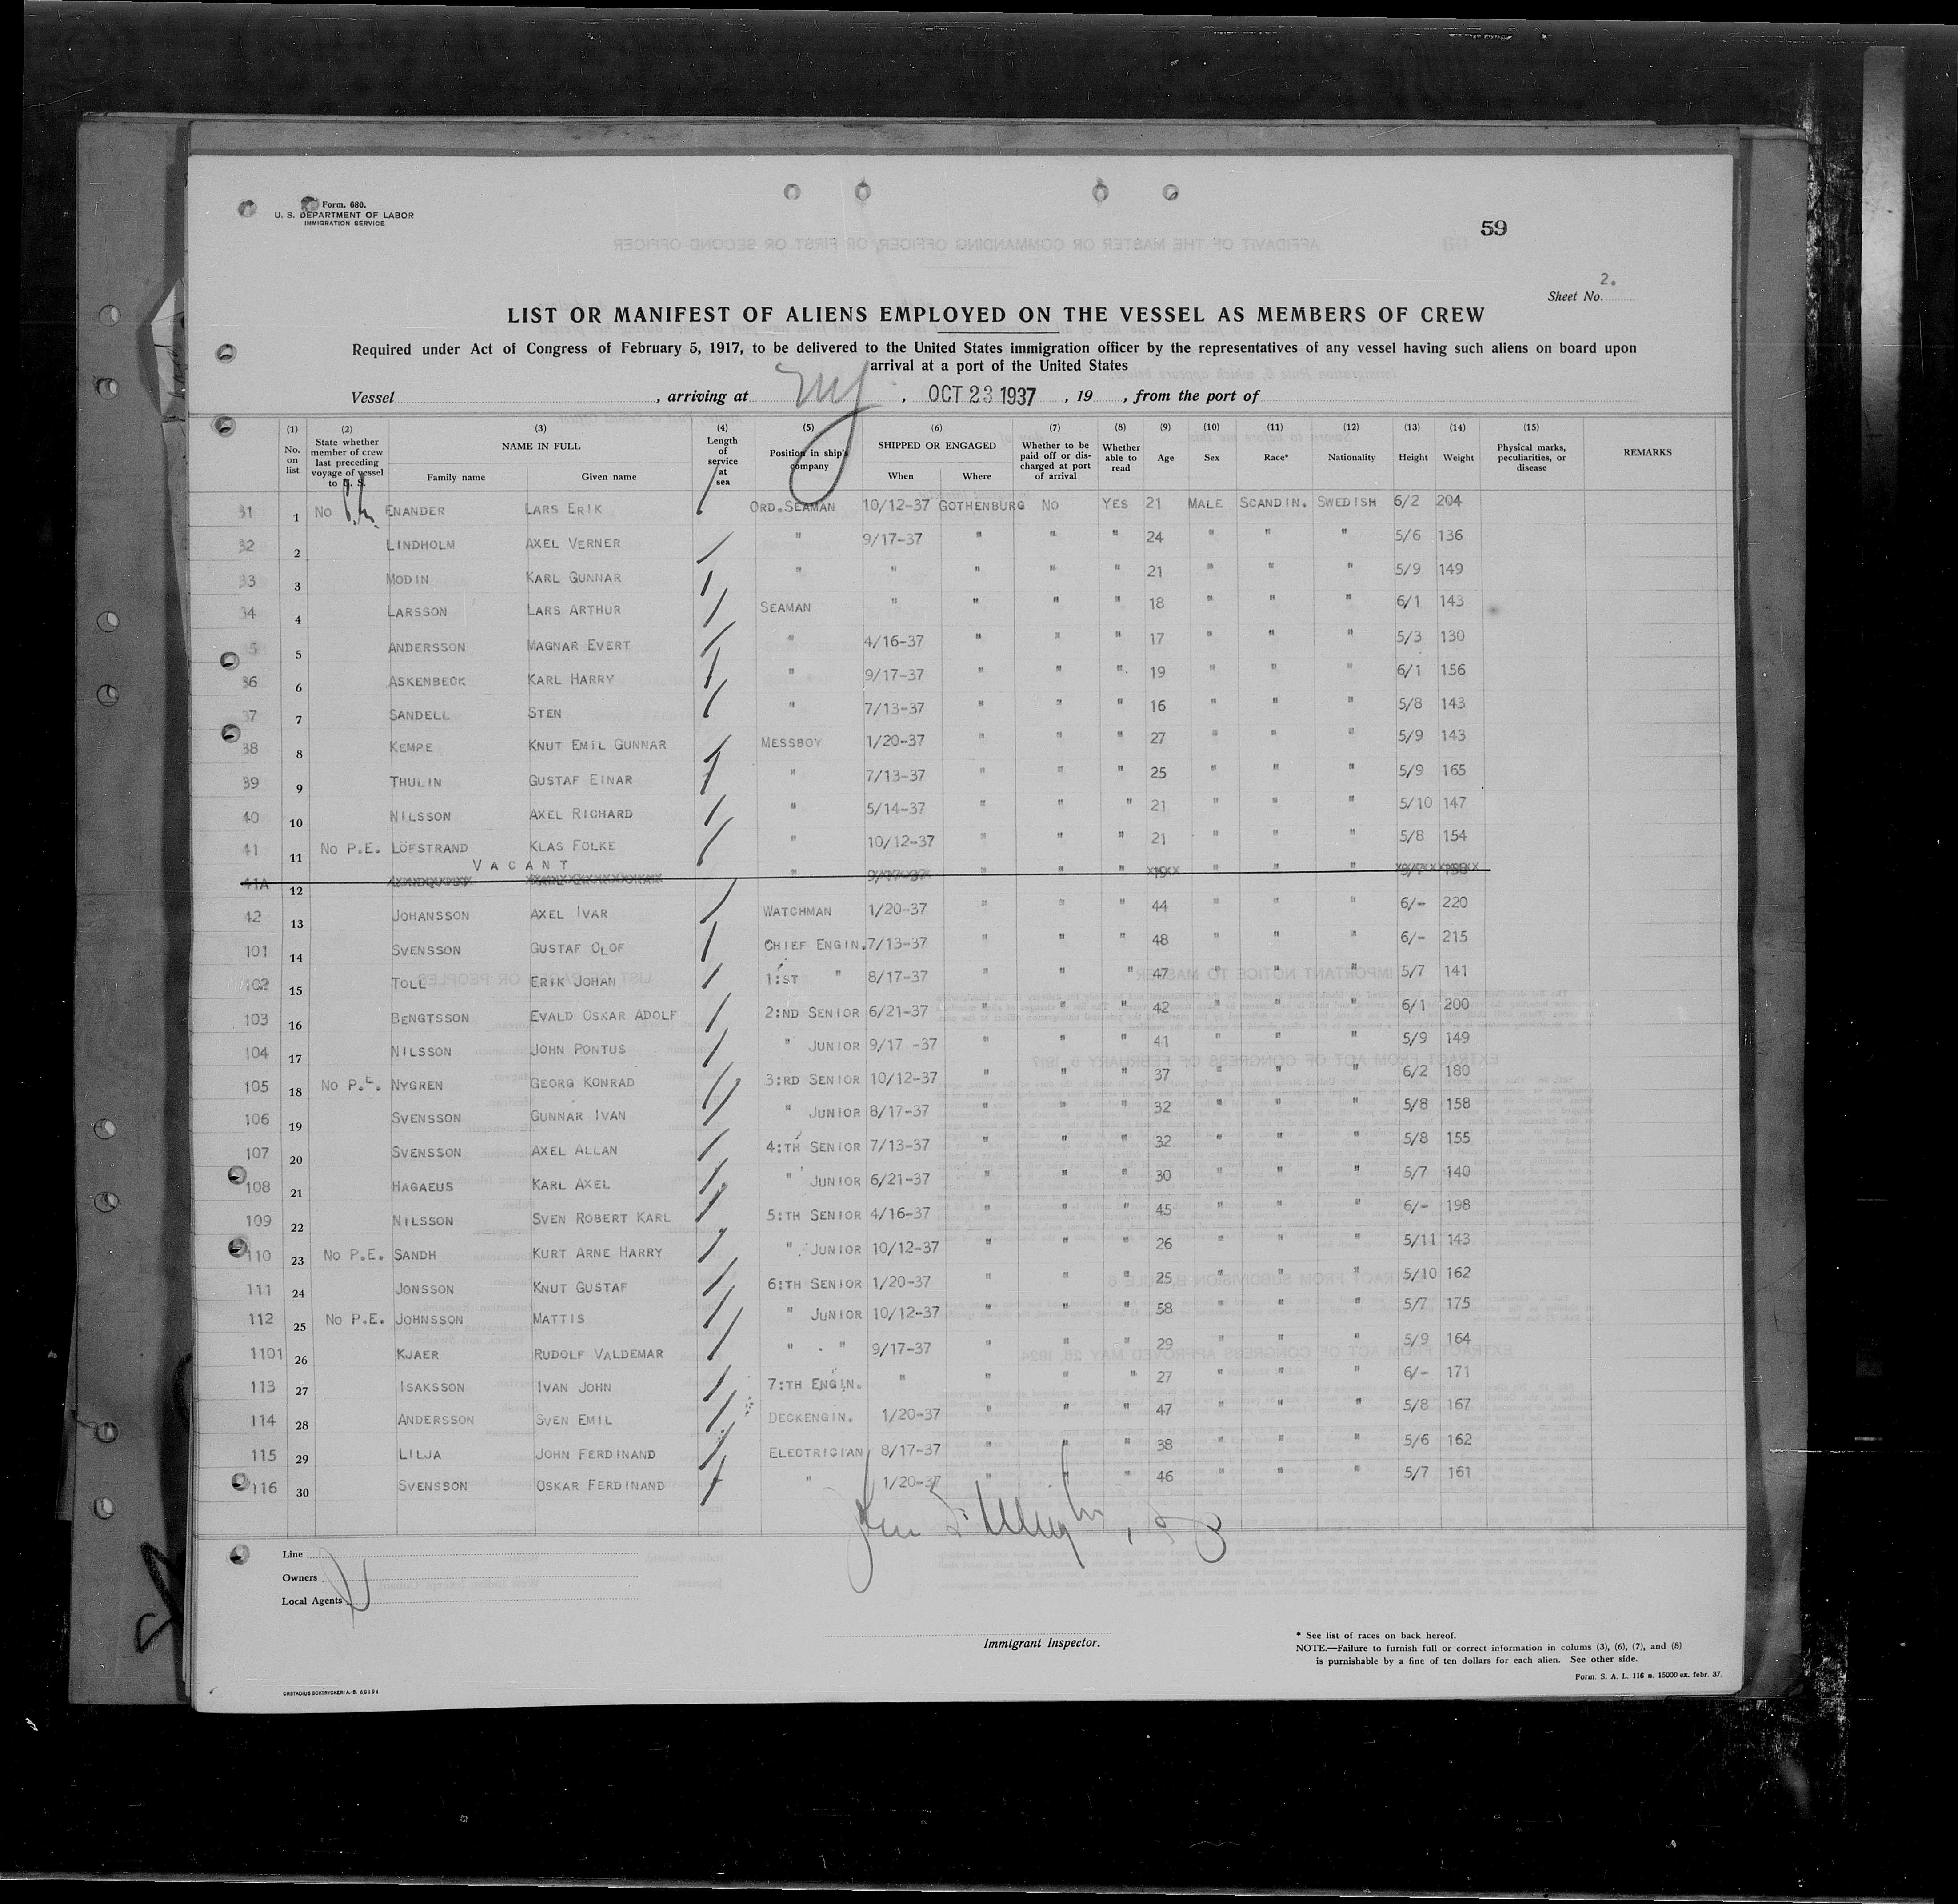 Form. 680.
U. S. DEPARTMENT OF LABOR
IMMIGRATION SERVICE
59
Sheet No. 2.
LIST OR MANIFEST OF ALIENS EMPLOYED ON THE VESSEL AS MEMBERS OF CREW
Required under Act of Congress of February 5, 1917, to be delivered to the United States immigration officer by the representatives of any vessel having such aliens on board upon
arrival at a port of the United States
Vessel , arriving at NY , OCT 23 1937 , 19 , from the port of
(1) No. on list (2) State whether member of crew last preceding voyage of vessel to U. S. (3) NAME IN FULL Family name Given name (4) Length of service at sea (5) Position in ship's company (6) SHIPPED OR ENGAGED When Where (7) Whether to be paid off or discharged at port of arrival (8) Whether able to read (9) Age (10) Sex (11) Race* (12) Nationality (13) Height (14) Weight (15) Physical marks, peculiarities, or disease REMARKS
31 1 No ENANDER LARS ERIK ORD.SEAMAN 10/12-37 GOTHENBURG No YES 21 MALE SCANDIN. SWEDISH 6/2 204
32 2 LINDHOLM AXEL VERNER " 9/17-37 " " " 24 " " " 5/6 136
33 3 MODIN KARL GUNNAR " " " " " 21 " " " 5/9 149
34 4 LARSSON LARS ARTHUR SEAMAN " " " " 18 " " " 6/1 143
35 5 ANDERSSON MAGNAR EVERT " 4/16-37 " " " 17 " " " 5/3 130
36 6 ASKENBECK KARL HARRY " 9/17-37 " " " 19 " " " 6/1 156
37 7 SANDELL STEN " 7/13-37 " " " 16 " " " 5/8 143
38 8 KEMPE KNUT EMIL GUNNAR MESSBOY 1/20-37 " " " 27 " " " 5/9 143
39 9 THULIN GUSTAF EINAR " 7/13-37 " " " 25 " " " 5/9 165
40 10 NILSSON AXEL RICHARD " 5/14-37 " " " 21 " " " 5/10 147
41 11 No P.E. LÖFSTRAND KLAS FOLKE " 10/12-37 " " " 21 " " " 5/8 154
41A 12 VACANT " 9/17-37 " " " 19 " " "
42 13 JOHANSSON AXEL IVAR WATCHMAN 1/20-37 " " " 44 " " " 6/- 220
101 14 SVENSSON GUSTAF OLOF CHIEF ENGIN. 7/13-37 " " " 48 " " " 6/- 215
102 15 TOLL ERIK JOHAN 1:ST " 8/17-37 " " " 47 " " " 5/7 141
103 16 BENGTSSON EVALD OSKAR ADOLF 2:ND SENIOR 6/21-37 " " " 42 " " " 6/1 200
104 17 NILSSON JOHN PONTUS " JUNIOR 9/17 -37 " " " 41 " " " 5/9 149
105 18 No P.E. NYGREN GEORG KONRAD 3:RD SENIOR 10/12-37 " " " 37 " " " 6/2 180
106 19 SVENSSON GUNNAR IVAN " JUNIOR 8/17-37 " " " 32 " " " 5/8 158
107 20 SVENSSON AXEL ALLAN 4:TH SENIOR 7/13-37 " " " 32 " " " 5/8 155
108 21 HAGAEUS KARL AXEL " JUNIOR 6/21-37 " " " 30 " " " 5/7 140
109 22 NILSSON SVEN ROBERT KARL 5:TH SENIOR 4/16-37 " " " 45 " " " 6/- 198
110 23 No P.E. SANDH KURT ARNE HARRY " JUNIOR 10/12-37 " " " 26 " " " 5/11 143
111 24 JONSSON KNUT GUSTAF 6:TH SENIOR 1/20-37 " " " 25 " " " 5/10 162
112 25 No P.E. JOHNSSON MATTIS " JUNIOR 10/12-37 " " " 58 " " " 5/7 175
1101 26 KJAER RUDOLF VALDEMAR " " 9/17-37 " " " 29 " " " 5/9 164
113 27 ISAKSSON IVAN JOHN 7:TH ENGIN. " " " " 27 " " " 6/- 171
114 28 ANDERSSON SVEN EMIL DECKENGIN. 1/20-37 " " " 47 " " " 5/8 167
115 29 LILJA JOHN FERDINAND ELECTRICIAN 8/17-37 " " " 38 " " " 5/6 162
116 30 SVENSSON OSKAR FERDINAND " 1/20-37 " " " 46 " " " 5/7 161
Line
Owners
Local Agents
Immigrant Inspector.
* See list of races on back hereof.
NOTE.—Failure to furnish full or correct information in colums (3), (6), (7), and (8)
is punishable by a fine of ten dollars for each alien. See other side.
Form. S. A. L. 116 a. 15000 ex. febr. 37.